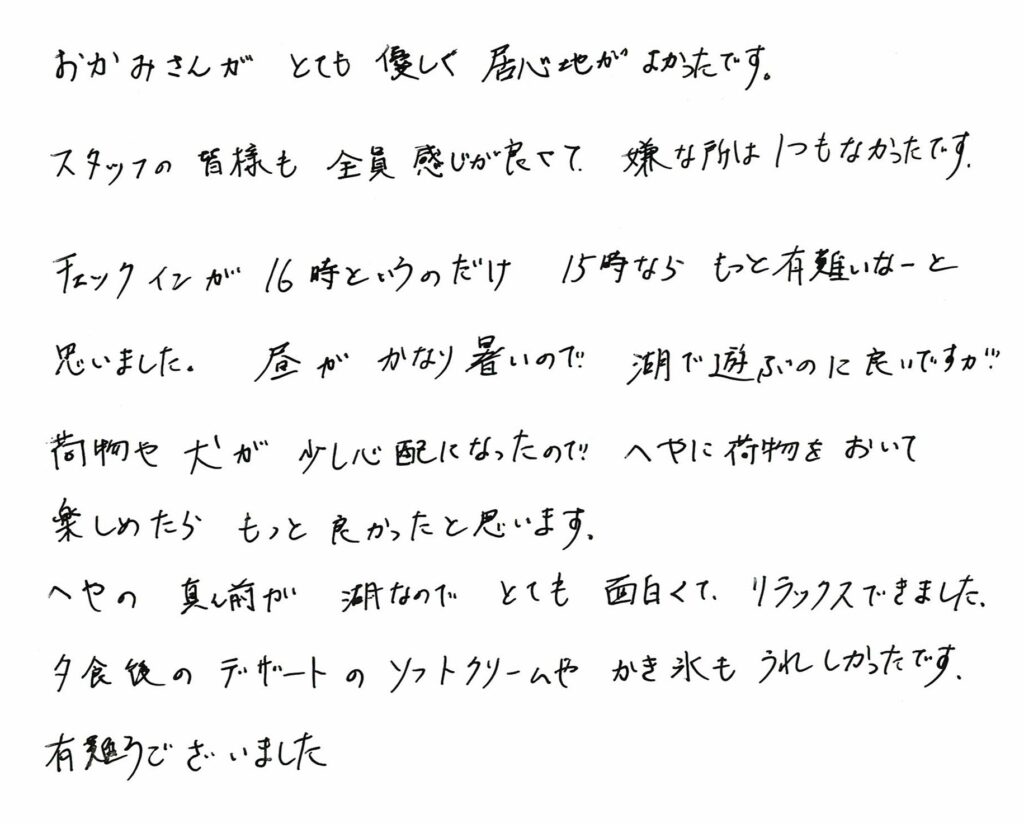 おかみさんが とても 優しく 居心地が よかったです。
スタッフの 皆様も 全員 感じが良くて 嫌な所は 1つもなかったです。
チェックインが 16時というのだけ 15時なら もっと有難いなーと
思いました。 昼が かなり 暑いので 湖で遊ぶのに良いですが
荷物や 犬が 少し心配になったので へやに荷物を おいて
楽しめたら もっと 良かったと思います。
へやの 真ん前が 湖なので とても 面白くて リラックスできました。
夕食後の デザートの ソフトクリームや かき氷も うれしかったです。
有難うございました